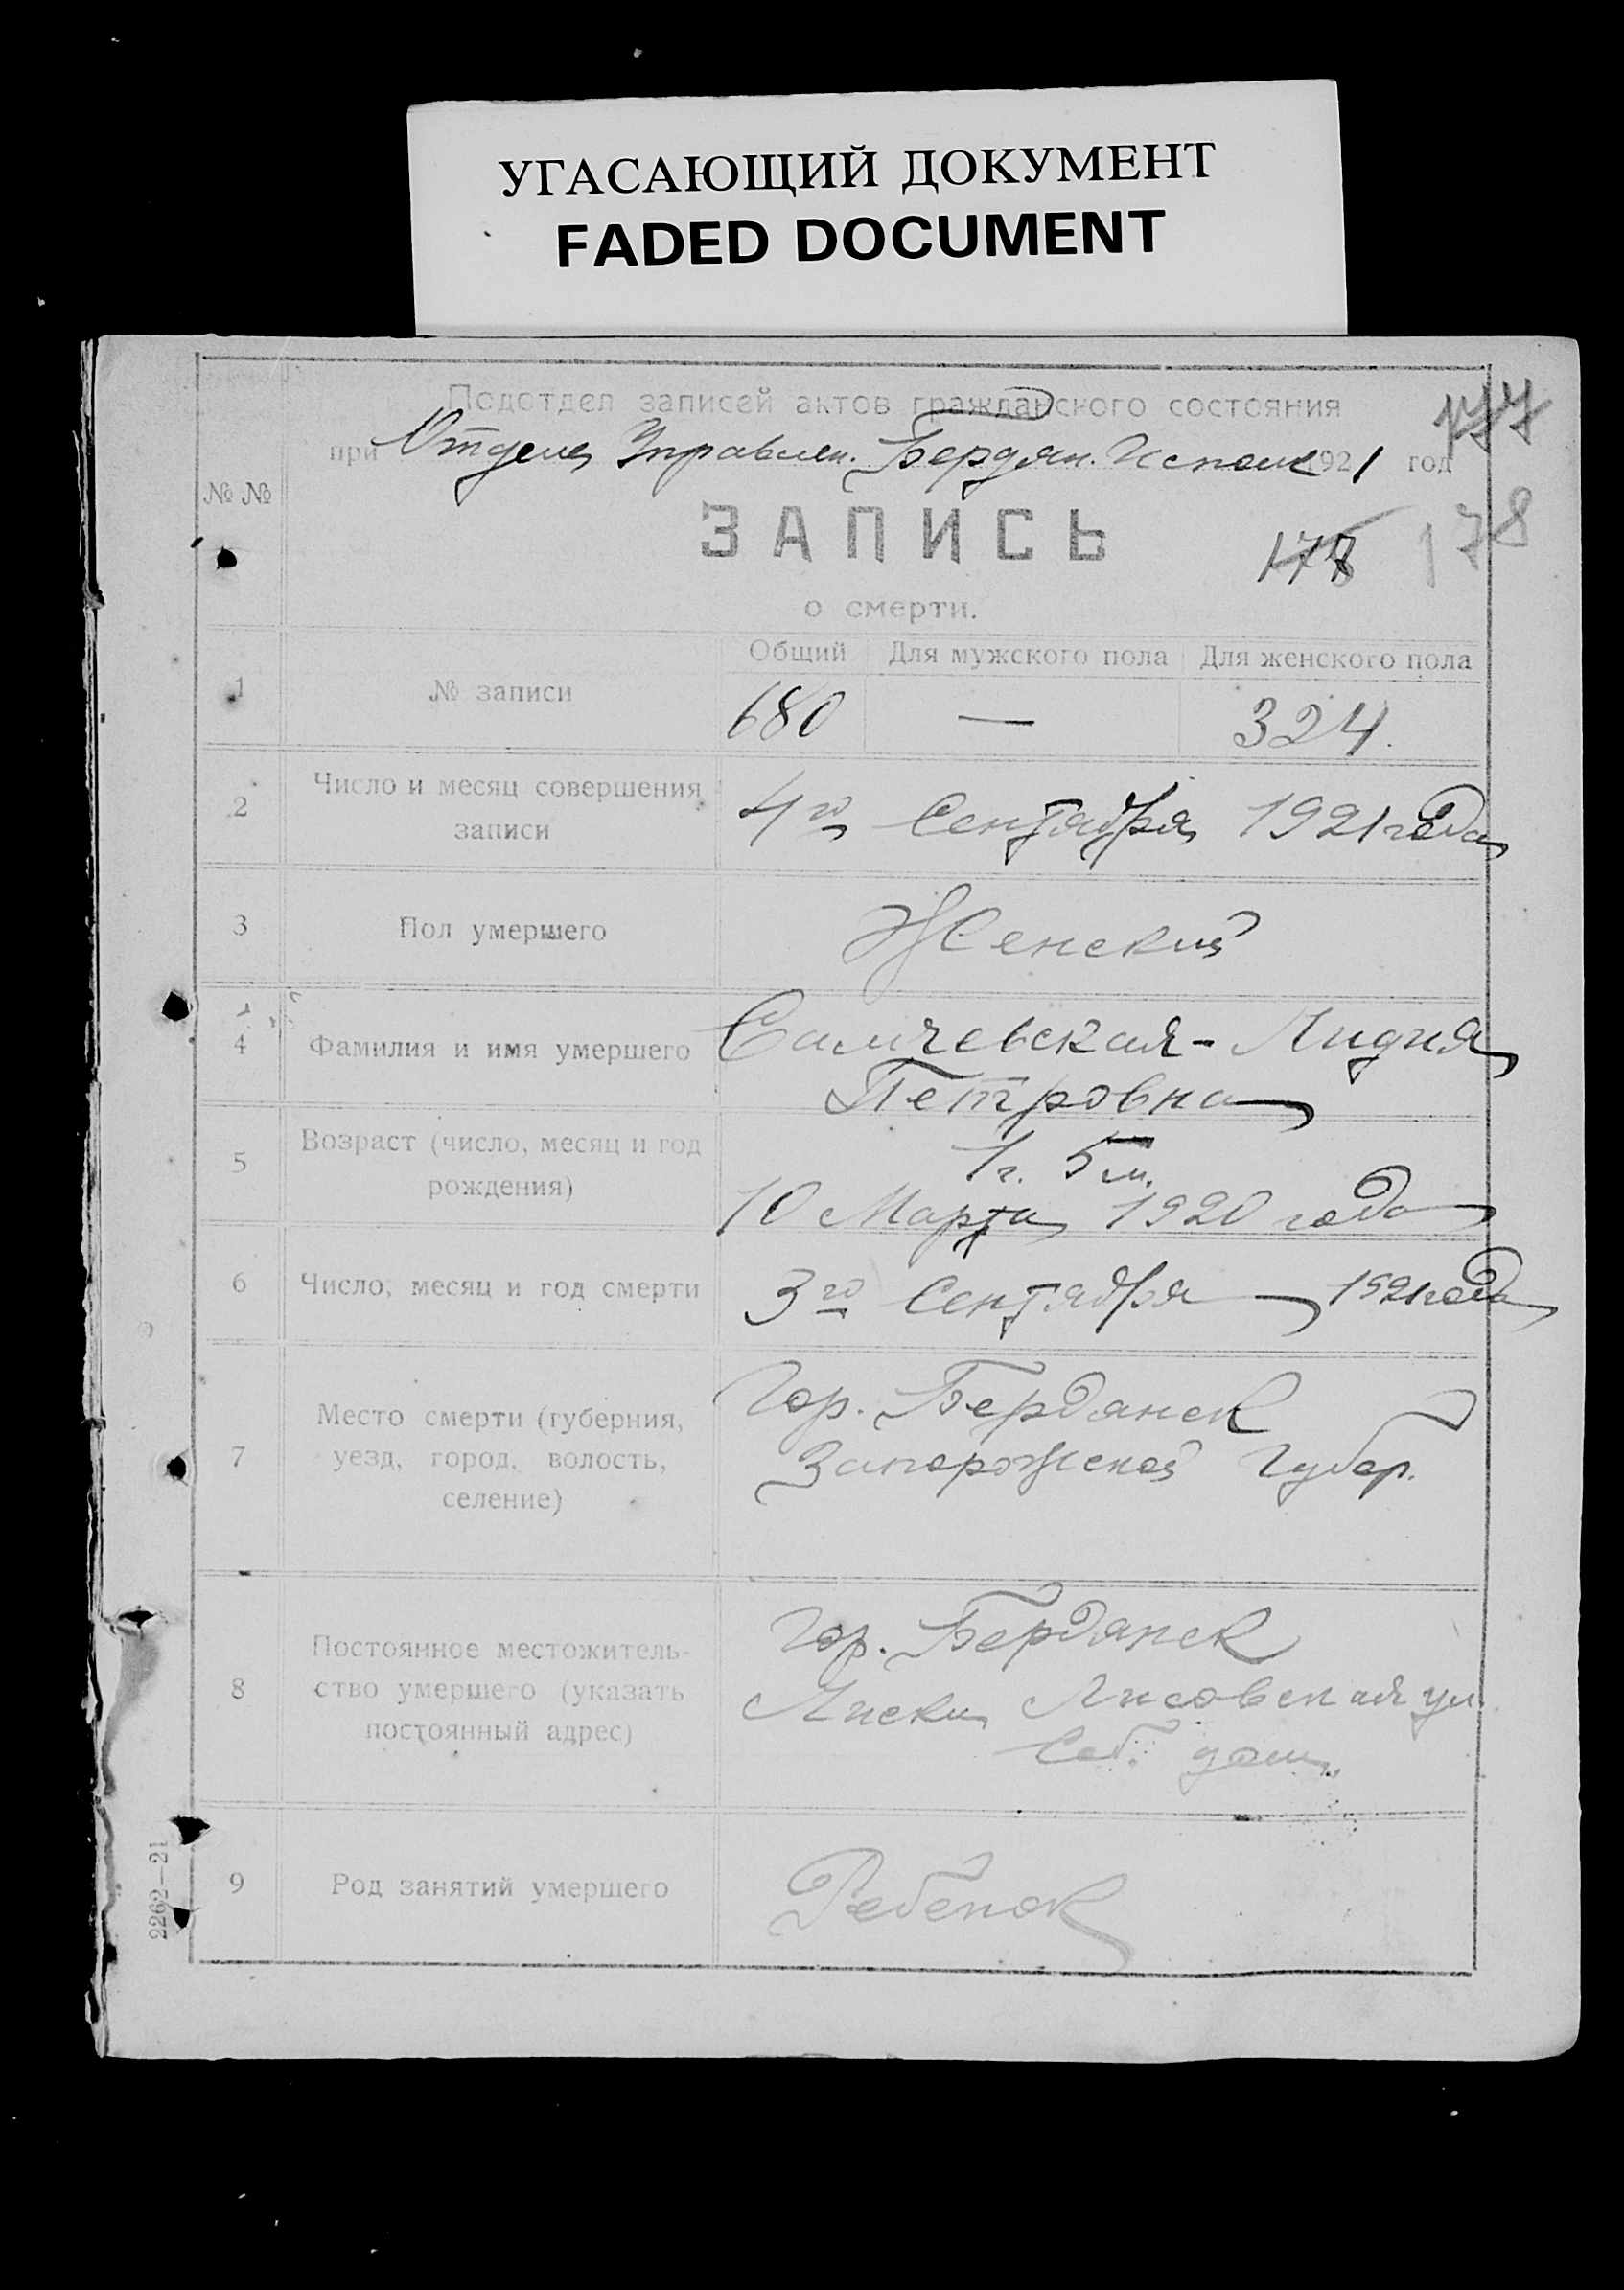 УГАСАЮЩИЙ ДОКУМЕНТ
FADED DOCUMENT
Подотдел записей актов гражданского состояния
при Отделе Управлен. Бердян. Исполк 1921 год
177
№ №
ЗАПИСЬ
178
178
о смерти.
Общий Для мужского пола Для женского пола
1 № записи 680 — 324.
2 Число и месяц совершения
записи
4го Сентября 1921 года
3 Пол умершего Женский
4 Фамилия и имя умершего Самчевская - Лидия
Петровна
5 Возраст (число, месяц и год
рождения)
1 г. 5 м.
10 Марта 1920 года
6 Число, месяц и год смерти 3го Сентября 1921 года
7 Место смерти (губерния,
уезд, город, волость,
селение)
Гор. Бердянск
Запорожской Губер.
8 Постоянное местожитель-
ство умершего (указать
постоянный адрес)
Гор. Бердянск
Лиски Лисовская ул.
Соб. дом
9 Род занятий умершего Ребенок
2262—21